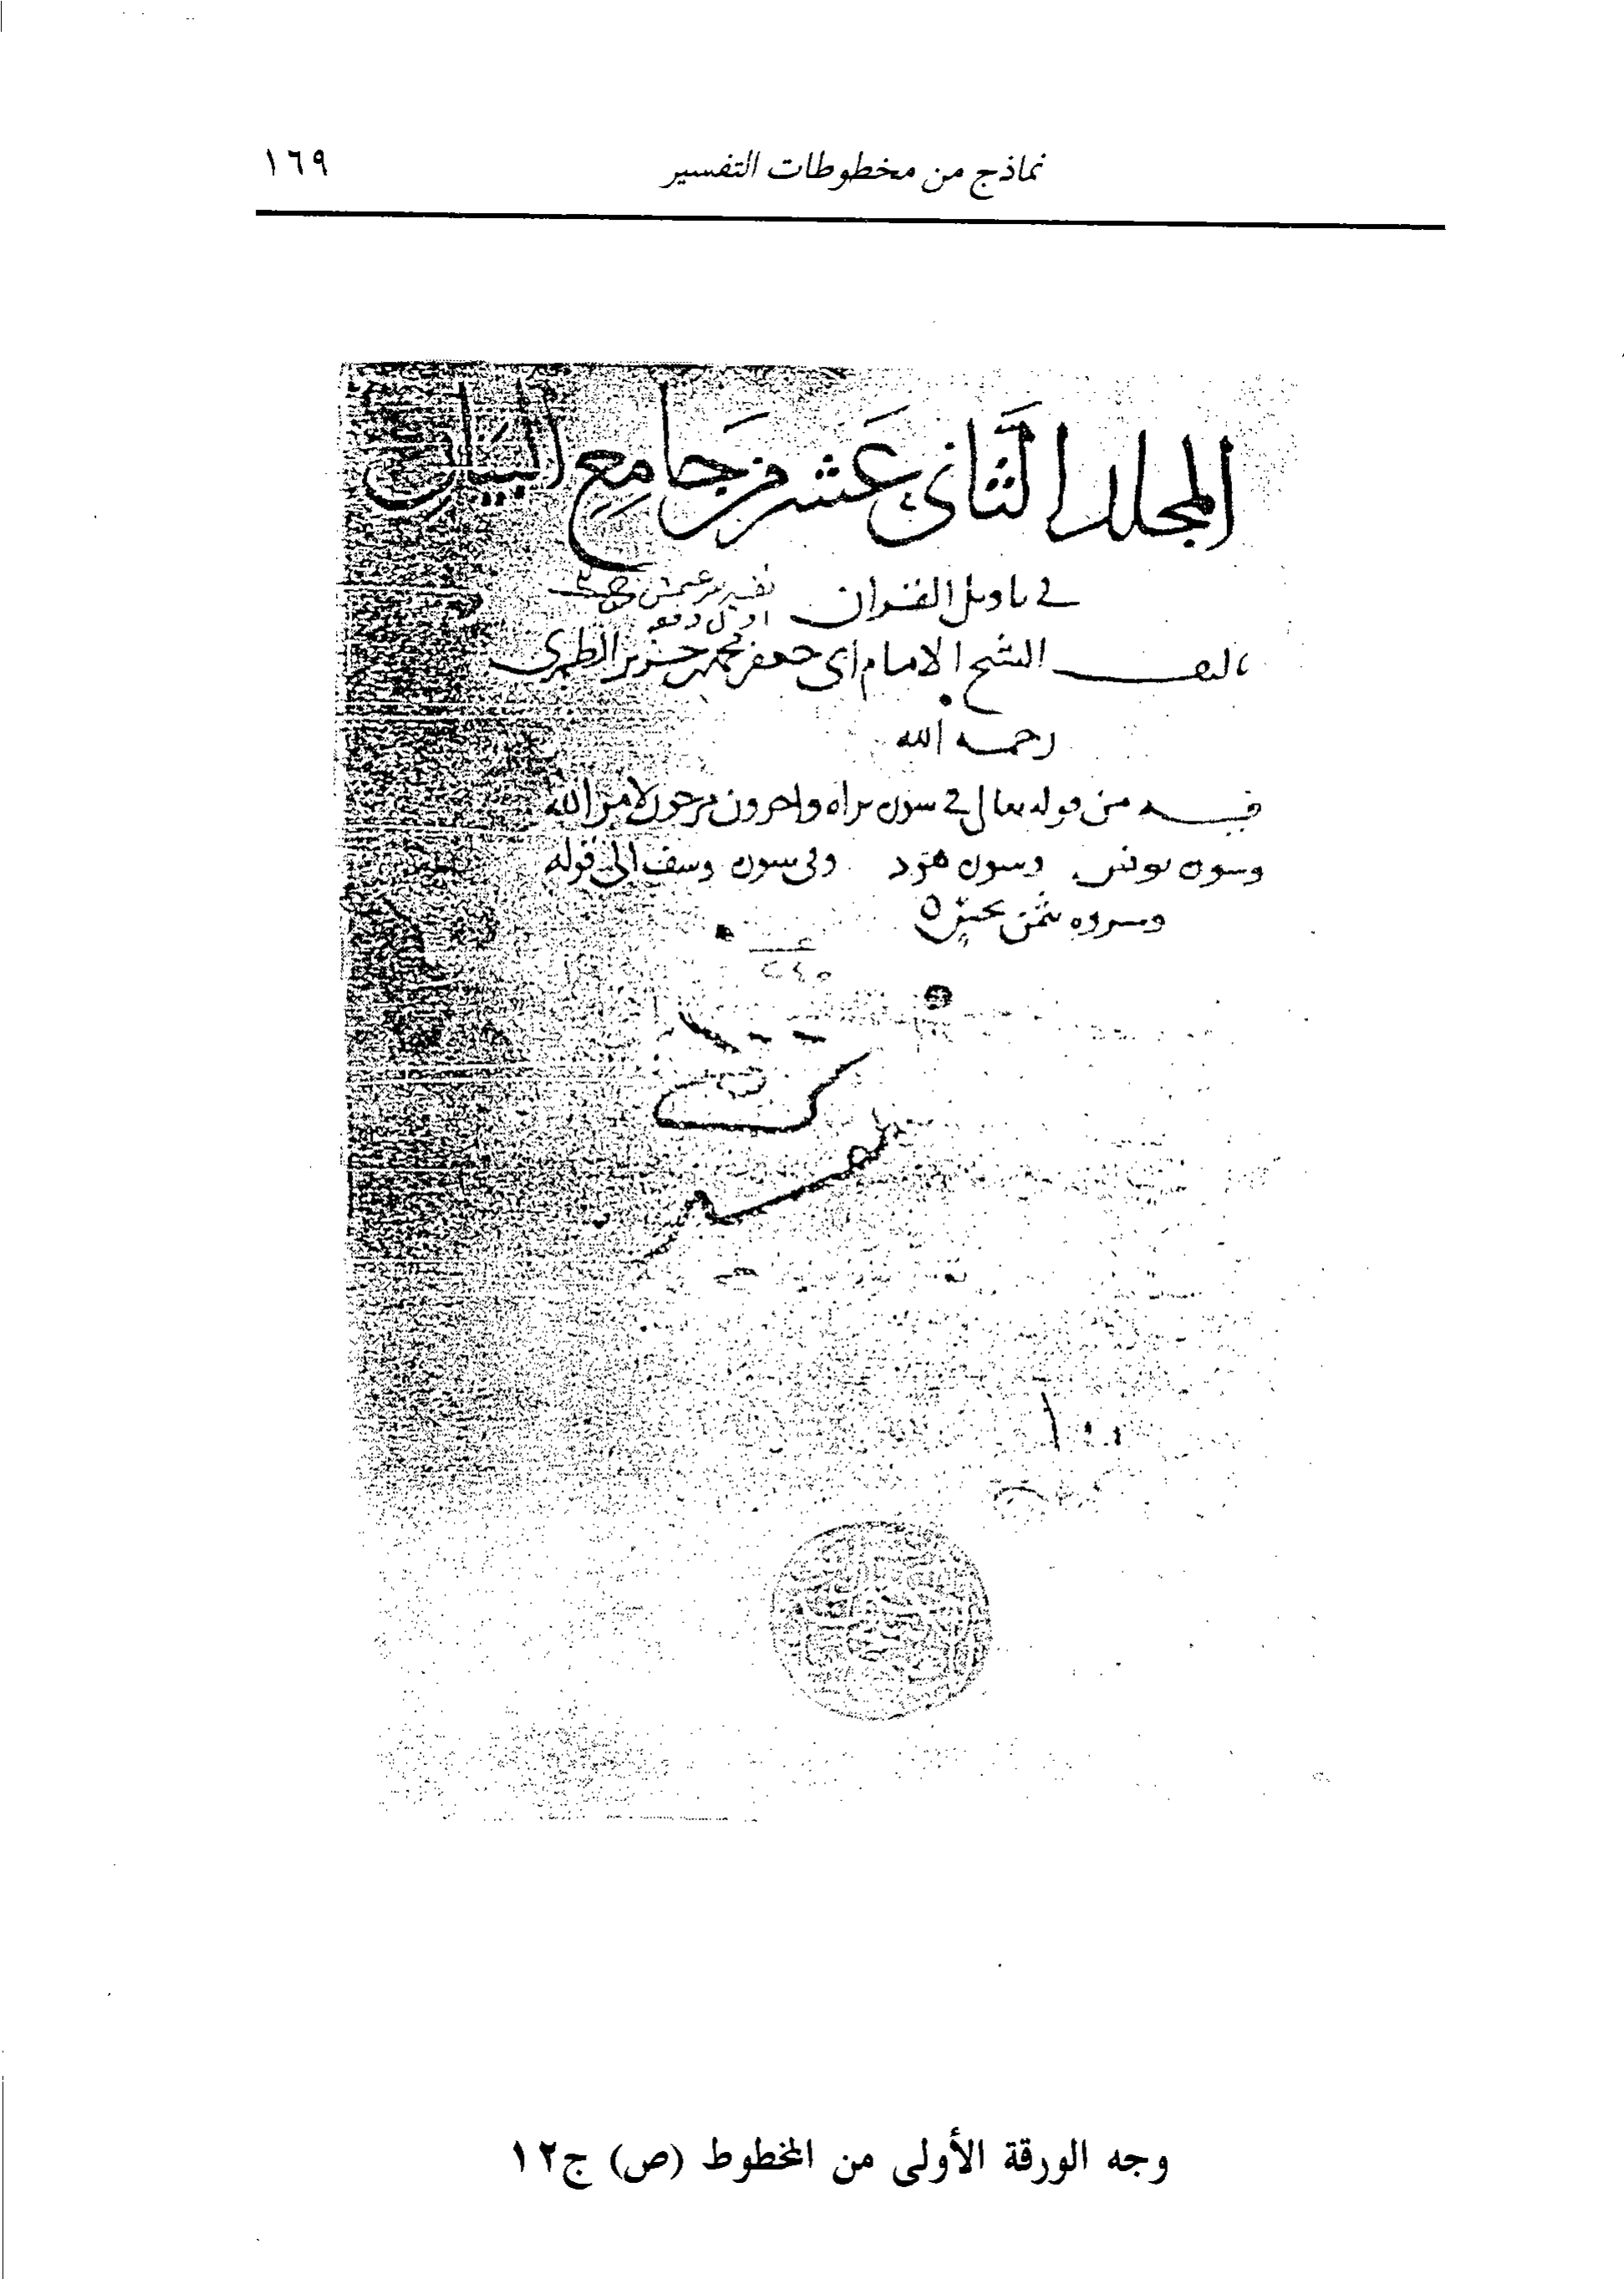 نماذج من مخطوطات التفسير ١٦٩
المجلد الثاني عشر من جامع البيان
في تاويل القران
تاليف الشيخ الامام ابي جعفر محمد بن جرير الطبري
رحمه الله
فيه من قوله تعالى في سورة براه واخرون مرجون لامر الله
وسورة يونس وسورة هود وفي سورة يوسف الى قوله
وشروه بثمن بخس
٢٤٥
١٠٠
وجه الورقة الأولى من المخطوط (ص) ج١٢